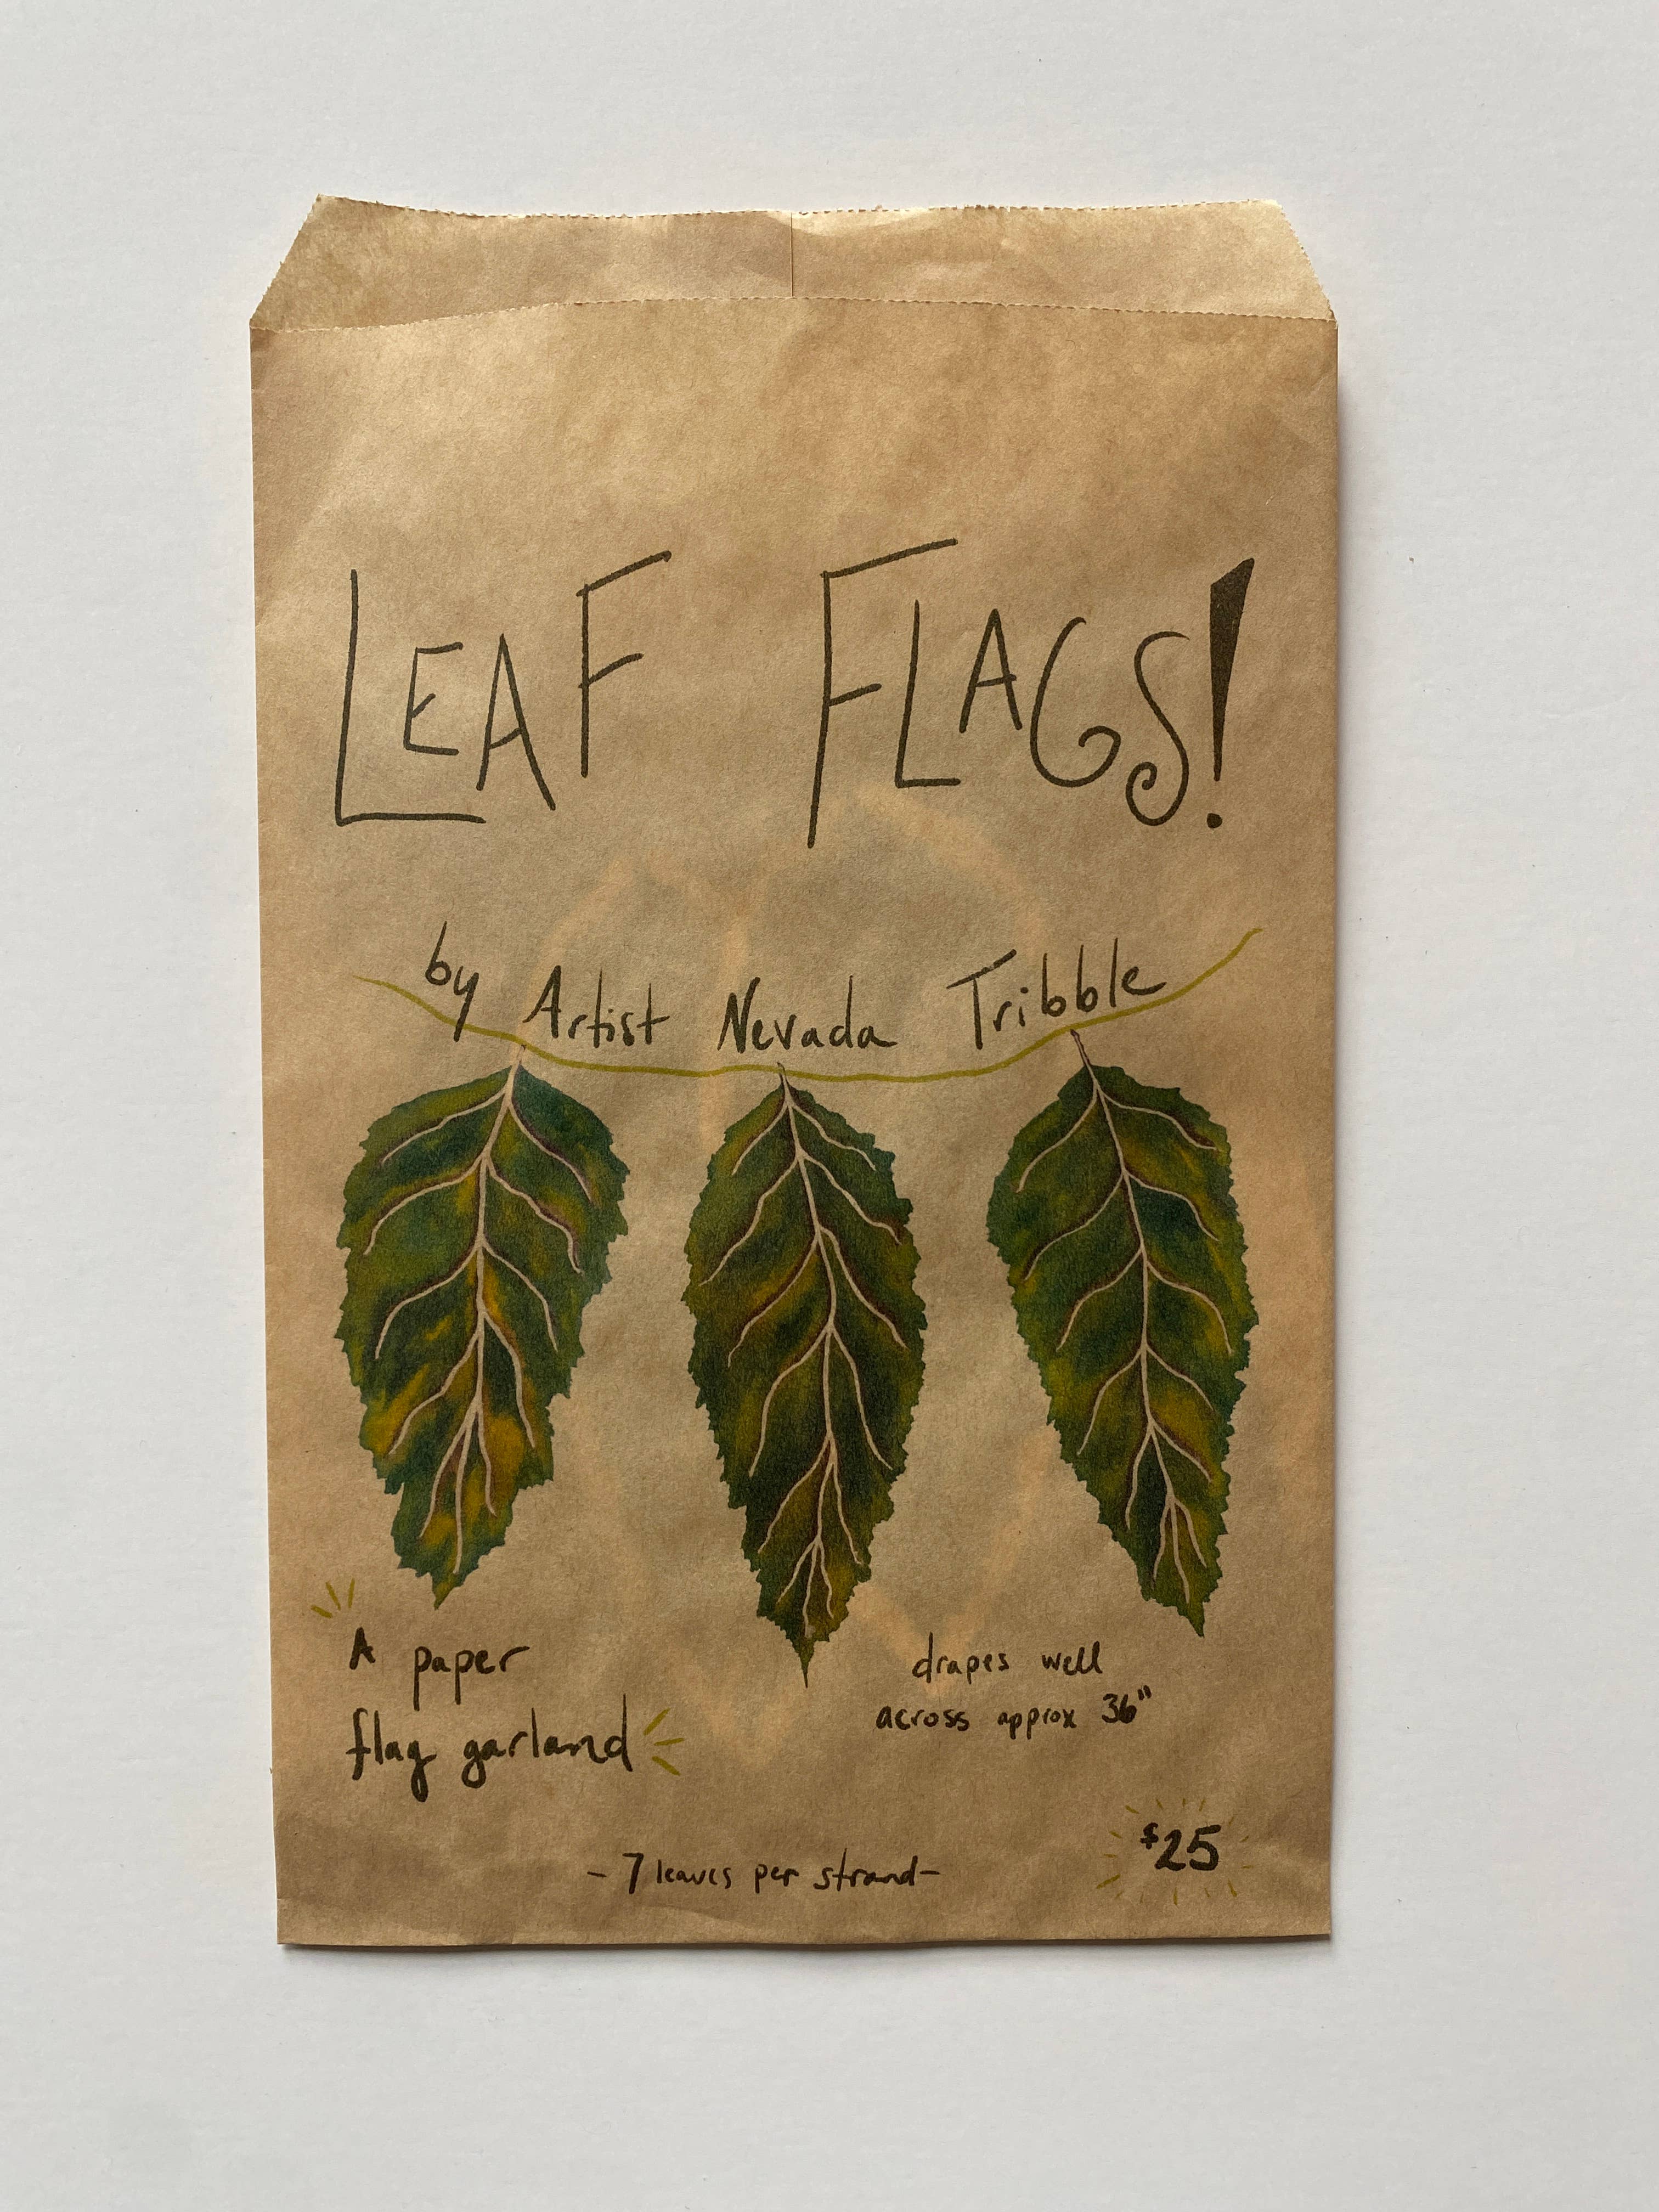 LEAF FLAGS!
by Artist Nevada Tribble
A paper
flag garland
drapes well
across approx 36"
- 7 leaves per strand -
$25